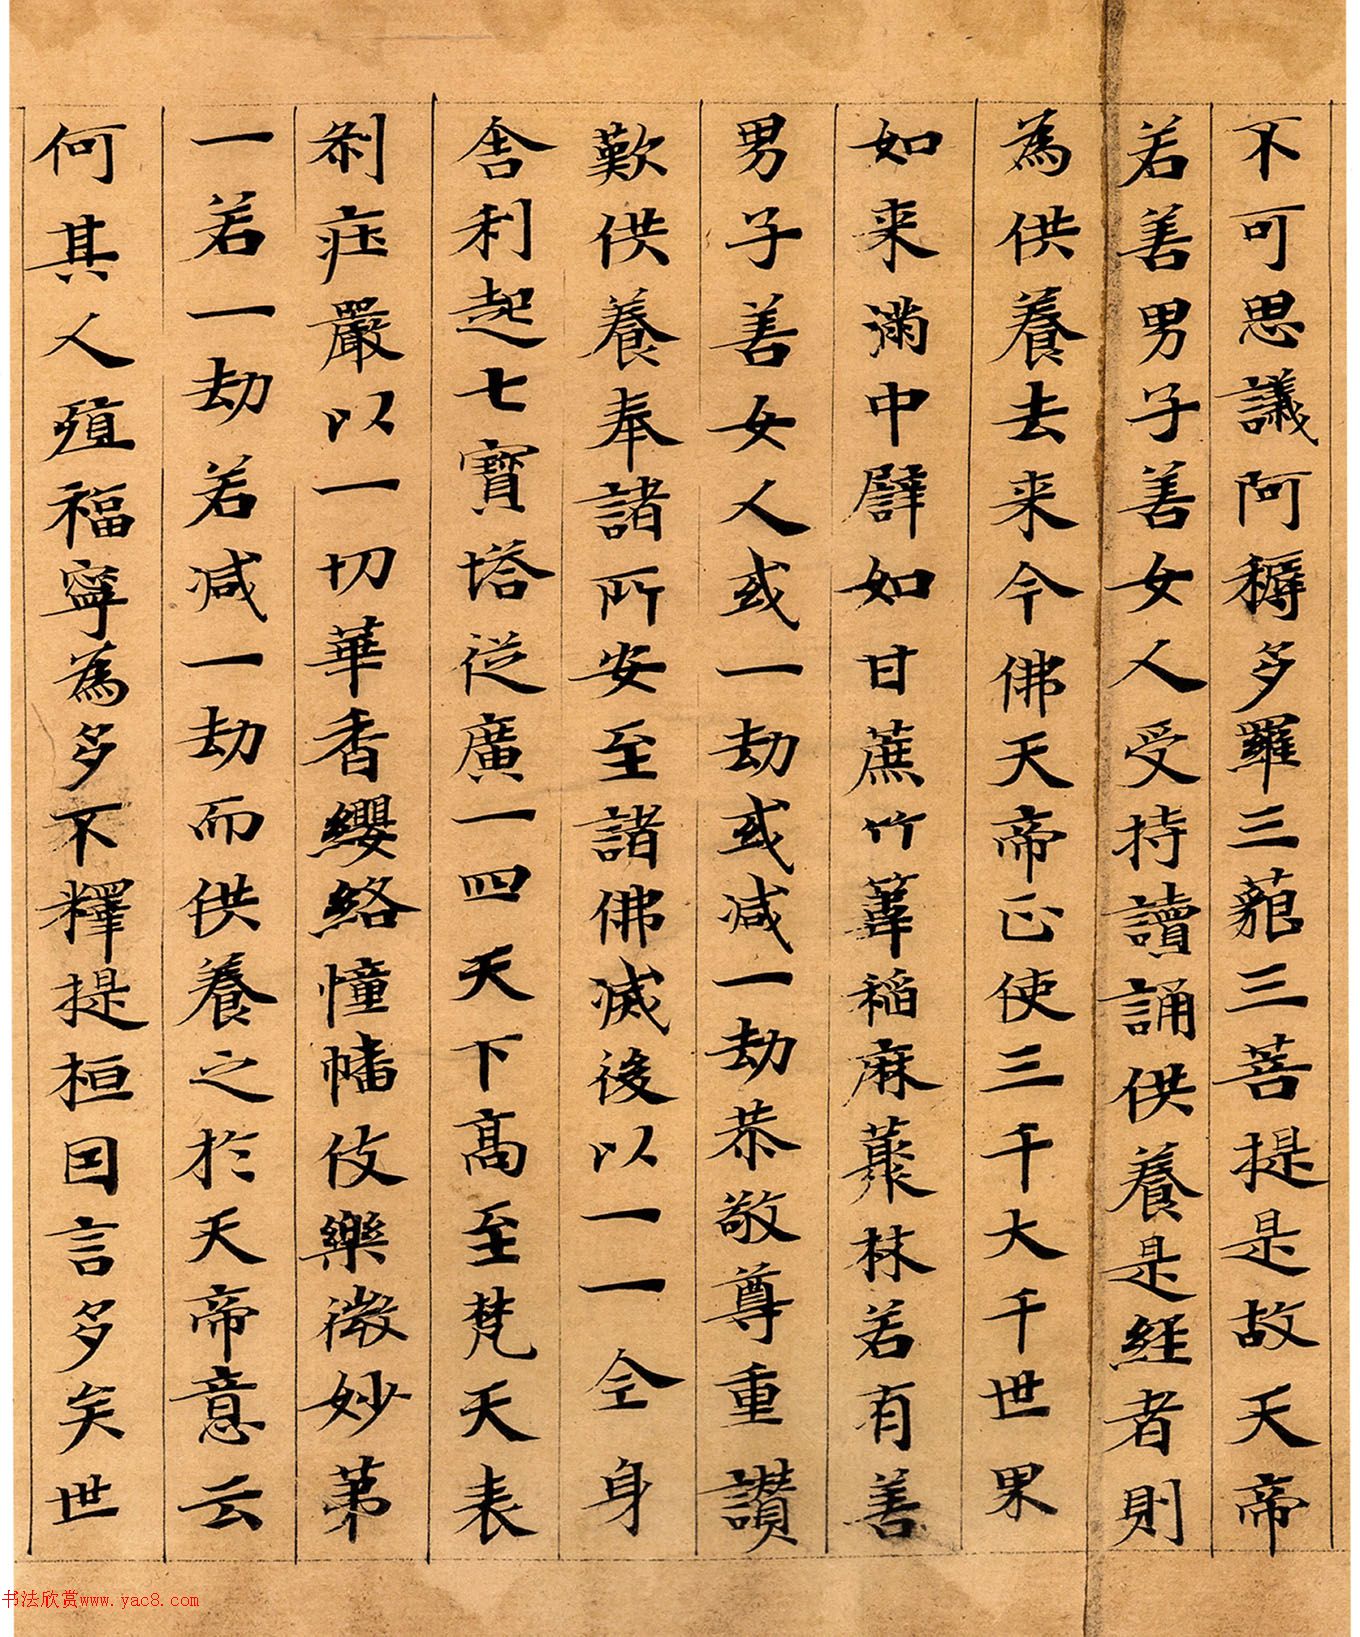 不可思議阿耨多羅三藐三菩提是故天帝
若善男子善女人受持讀誦供養是經者則
為供養去来今佛天帝正使三千大千世界
如来滿中譬如甘蔗竹葦稲麻藂林若有善
男子善女人或一劫或减一劫恭敬尊重讚
歎供養奉諸所安至諸佛滅後以一一全身
舍利起七寶塔從廣一四天下高至梵天表
刹莊嚴以一切華香纓絡幢幡伎樂微妙第
一若一劫若减一劫而供養之於天帝意云
何其人殖福寧為多不釋提桓因言多矣世
书法欣赏www.yac8.com